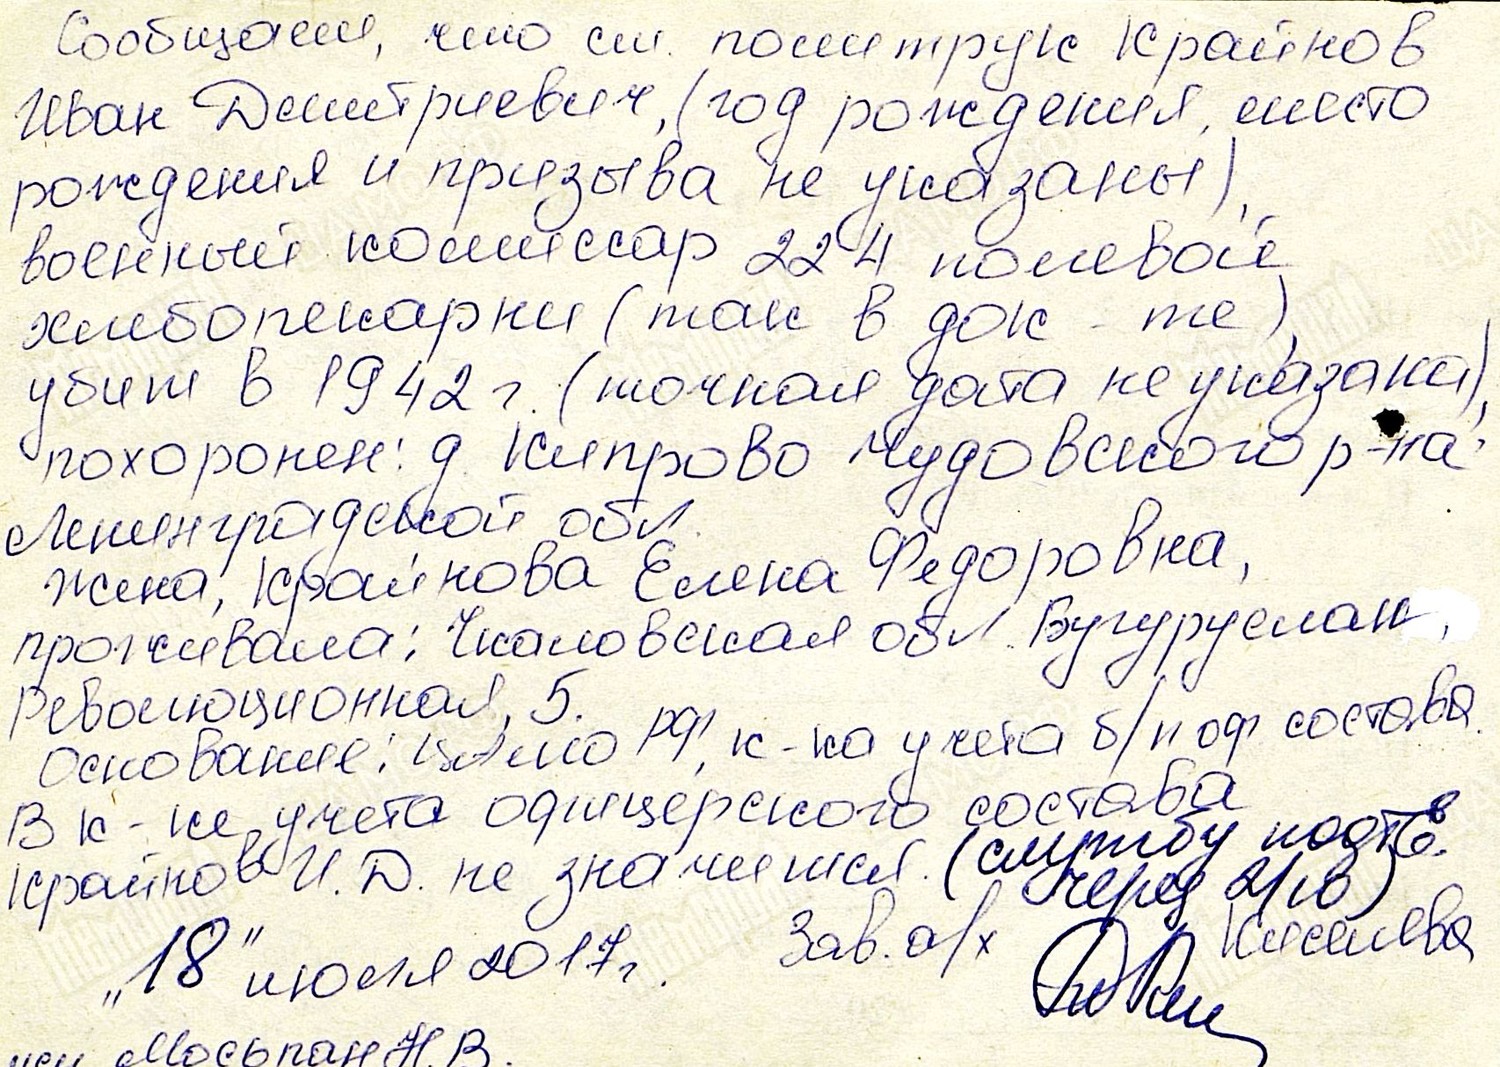 Сообщаем, что ст. политрук Крайнов
Иван Дмитриевич, (год рождения, место
рождения и призыва не указаны),
военный комиссар 224 полевой
хлебопекарни (так в док-те),
убит в 1942 г. (точная дата не указана),
похоронен: д. Кипрово Чудовского р-на
Ленинградской обл.
Жена, Крайнова Елена Федоровна,
проживала: Чкаловская обл. Бугуруслан,
Революционная, 5.
Основание: ЦАМО РФ, к-ка учета б/п оф состава.
В к-ке учета офицерского состава
Крайнов И.Д. не значится. (службу подтв.
через 2/10)
Зав. а/х Киселева
„18" июля 2017 г.
Мосьпан Н.В.